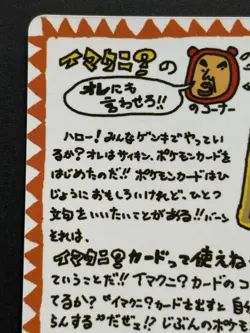 イマクニ?の
オレにも
言わせろ!!
のコーナー
ハロー!みんなゲンキでやってい
るか?オレはサイキン、ポケモンカードを
はじめたのだ!!ポケモンカードはひ
じょうにおもしろいけれど、ひとつ
文句をいいたいことがある!!バーン
それは、
イマクニ?カードって使えね
ていうことだ!!イマクニ?カードのコ
てるか?"イマクニ?カードを出すと自
らんする"だぜェ!?じぶんのポケモ